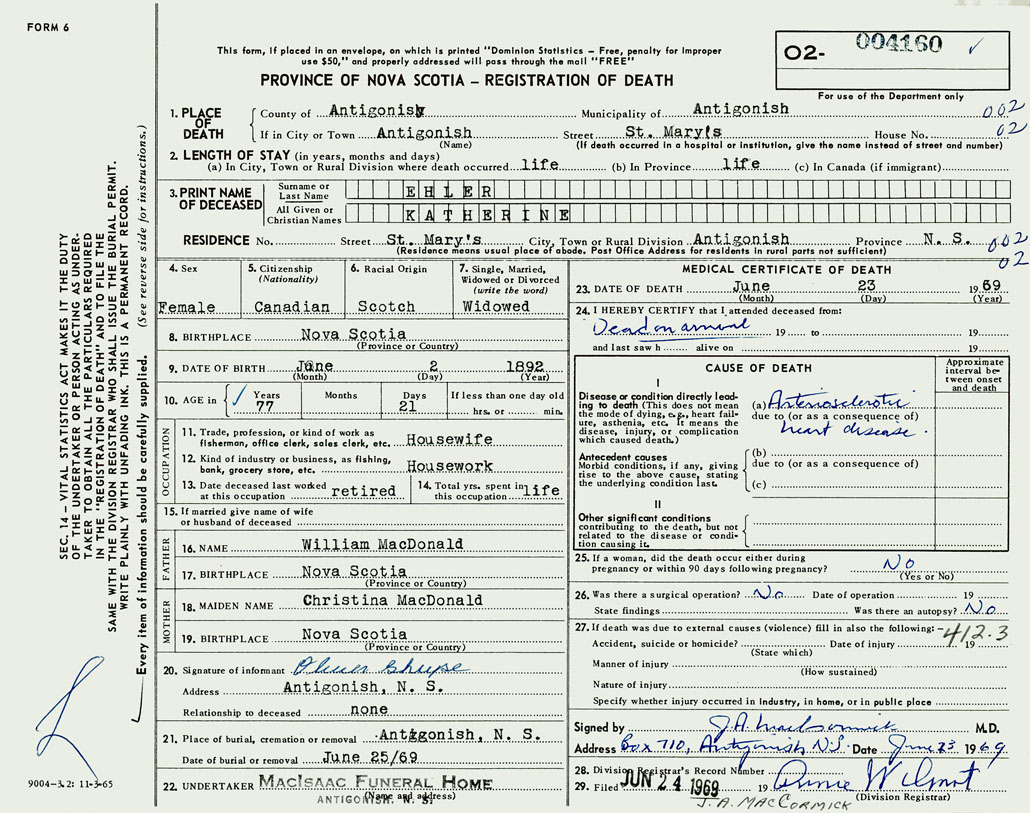 FORM 6
This form, if placed in an envelope, on which is printed "Dominion Statistics – Free, penalty for improper
use $50," and properly addressed will pass through the mail "FREE"
PROVINCE OF NOVA SCOTIA – REGISTRATION OF DEATH
O2- 004160 ✓
For use of the Department only
SEC. 14 – VITAL STATISTICS ACT MAKES IT THE DUTY
OF THE UNDERTAKER OR PERSON ACTING AS UNDER-
TAKER TO OBTAIN ALL THE PARTICULARS REQUIRED
IN THE "REGISTRATION OF DEATH" AND TO FILE THE
SAME WITH THE DIVISION REGISTRAR WHO SHALL ISSUE THE BURIAL PERMIT.
WRITE PLAINLY WITH UNFADING INK. THIS IS A PERMANENT RECORD.
Every item of information should be carefully supplied. (See reverse side for instructions.)
1. PLACE OF DEATH
County of Antigonish Municipality of Antigonish 002
If in City or Town Antigonish Street St. Mary's House No. 02
(Name) (If death occurred in a hospital or institution, give the name instead of street and number)
2. LENGTH OF STAY (in years, months and days)
(a) In City, Town or Rural Division where death occurred life (b) In Province life (c) In Canada (if immigrant)
3. PRINT NAME OF DECEASED
Surname or Last Name EHLER
All Given or Christian Names KATHERINE
RESIDENCE No. Street St. Mary's City, Town or Rural Division Antigonish Province N. S. 002
(Residence means usual place of abode. Post Office Address for residents in rural parts not sufficient) 02
4. Sex
Female
5. Citizenship (Nationality)
Canadian
6. Racial Origin
Scotch
7. Single, Married, Widowed or Divorced (write the word)
Widowed
8. BIRTHPLACE Nova Scotia
(Province or Country)
9. DATE OF BIRTH June 2 1892
(Month) (Day) (Year)
10. AGE in ✓ Years 77 Months Days 21 If less than one day old hrs. or min.
OCCUPATION
11. Trade, profession, or kind of work as
fisherman, office clerk, sales clerk, etc. Housewife
12. Kind of industry or business, as fishing,
bank, grocery store, etc. Housework
13. Date deceased last worked
at this occupation retired
14. Total yrs. spent in
this occupation life
15. If married give name of wife
or husband of deceased
FATHER
16. NAME William MacDonald
17. BIRTHPLACE Nova Scotia
(Province or Country)
MOTHER
18. MAIDEN NAME Christina MacDonald
19. BIRTHPLACE Nova Scotia
(Province or Country)
20. Signature of informant
Address Antigonish, N. S.
Relationship to deceased none
21. Place of burial, cremation or removal Antigonish, N. S.
Date of burial or removal June 25/69
22. UNDERTAKER MACISAAC FUNERAL HOME
(Name and address)
ANTIGONISH, N. S.
9004-3.2: 11-3-65
MEDICAL CERTIFICATE OF DEATH
23. DATE OF DEATH June 23 1969
(Month) (Day) (Year)
24. I HEREBY CERTIFY that I attended deceased from:
Dead on arrival 19 to 19
and last saw h alive on 19
CAUSE OF DEATH
Approximate interval between onset and death
I
Disease or condition directly lead-
ing to death (This does not mean
the mode of dying, e.g., heart fail-
ure, asthenia, etc. It means the
disease, injury, or complication
which caused death.)
(a) Arteriosclerotic
due to (or as a consequence of)
heart disease.
Antecedent causes
Morbid conditions, if any, giving
rise to the above cause, stating
the underlying condition last.
(b)
due to (or as a consequence of)
(c)
II
Other significant conditions
contributing to the death, but not
related to the disease or condi-
tion causing it.
25. If a woman, did the death occur either during
pregnancy or within 90 days following pregnancy? No
(Yes or No)
26. Was there a surgical operation? No Date of operation 19
State findings Was there an autopsy? No
27. If death was due to external causes (violence) fill in also the following: 412.3
Accident, suicide or homicide? Date of injury 19
(State which)
Manner of injury
(How sustained)
Nature of injury
Specify whether injury occurred in industry, in home, or in public place
Signed by J.A. MacCormick M.D.
Address Box 710, Antigonish N.S. Date June 23 1969
28. Division Registrar's Record Number
29. Filed JUN 24 1969 19
(Division Registrar)
J. A. MACCORMICK